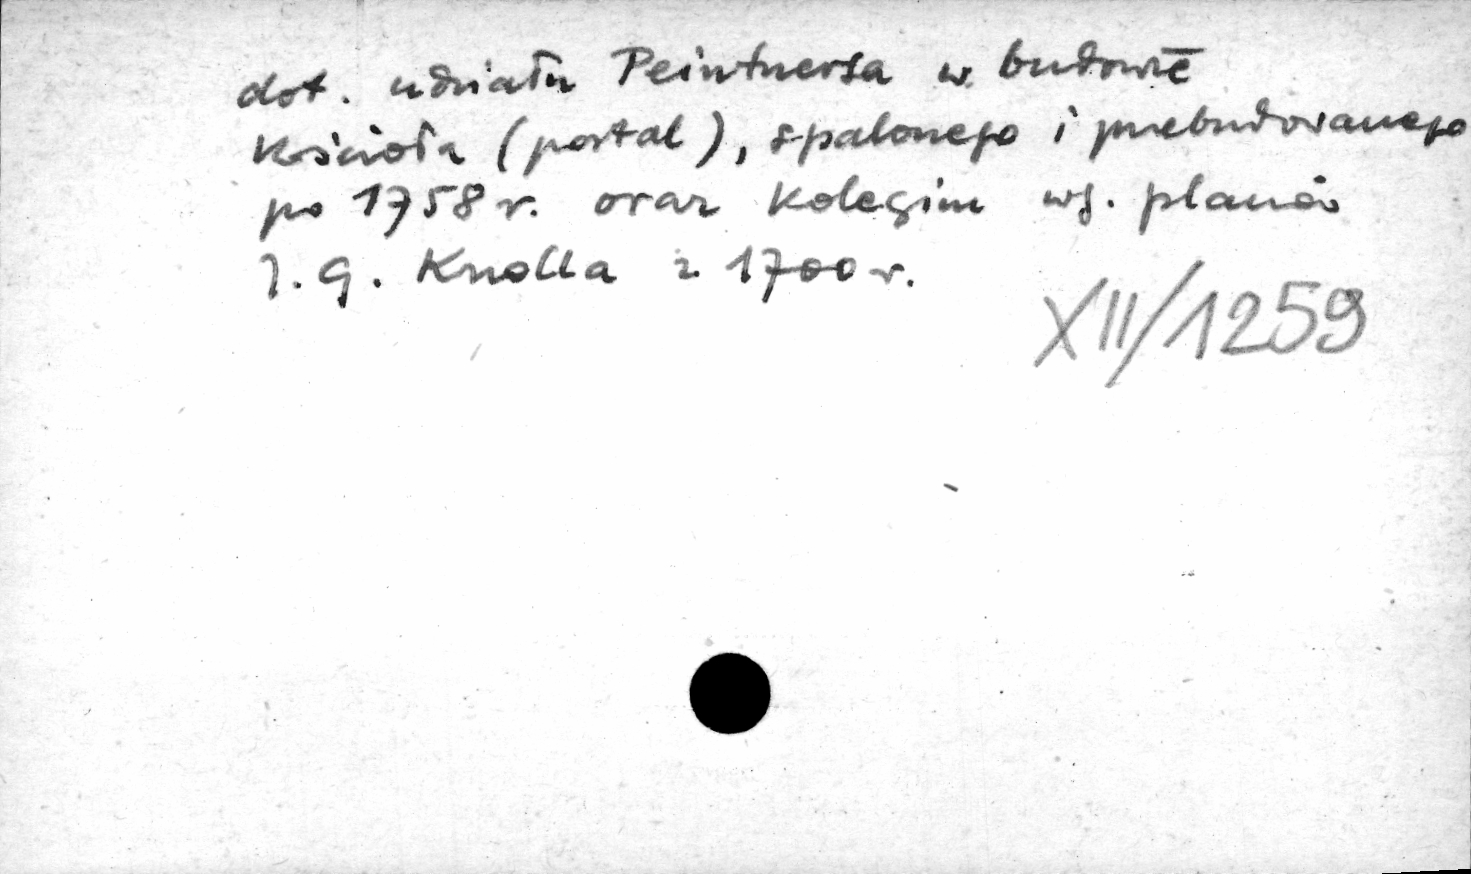 dot. udziału Peintnersa w budowie
kościoła (portal), spalonego i przebudowanego
po 1758 r. oraz kolegium wg. planów
J. G. Knolla z 1700 r.
XII/1259